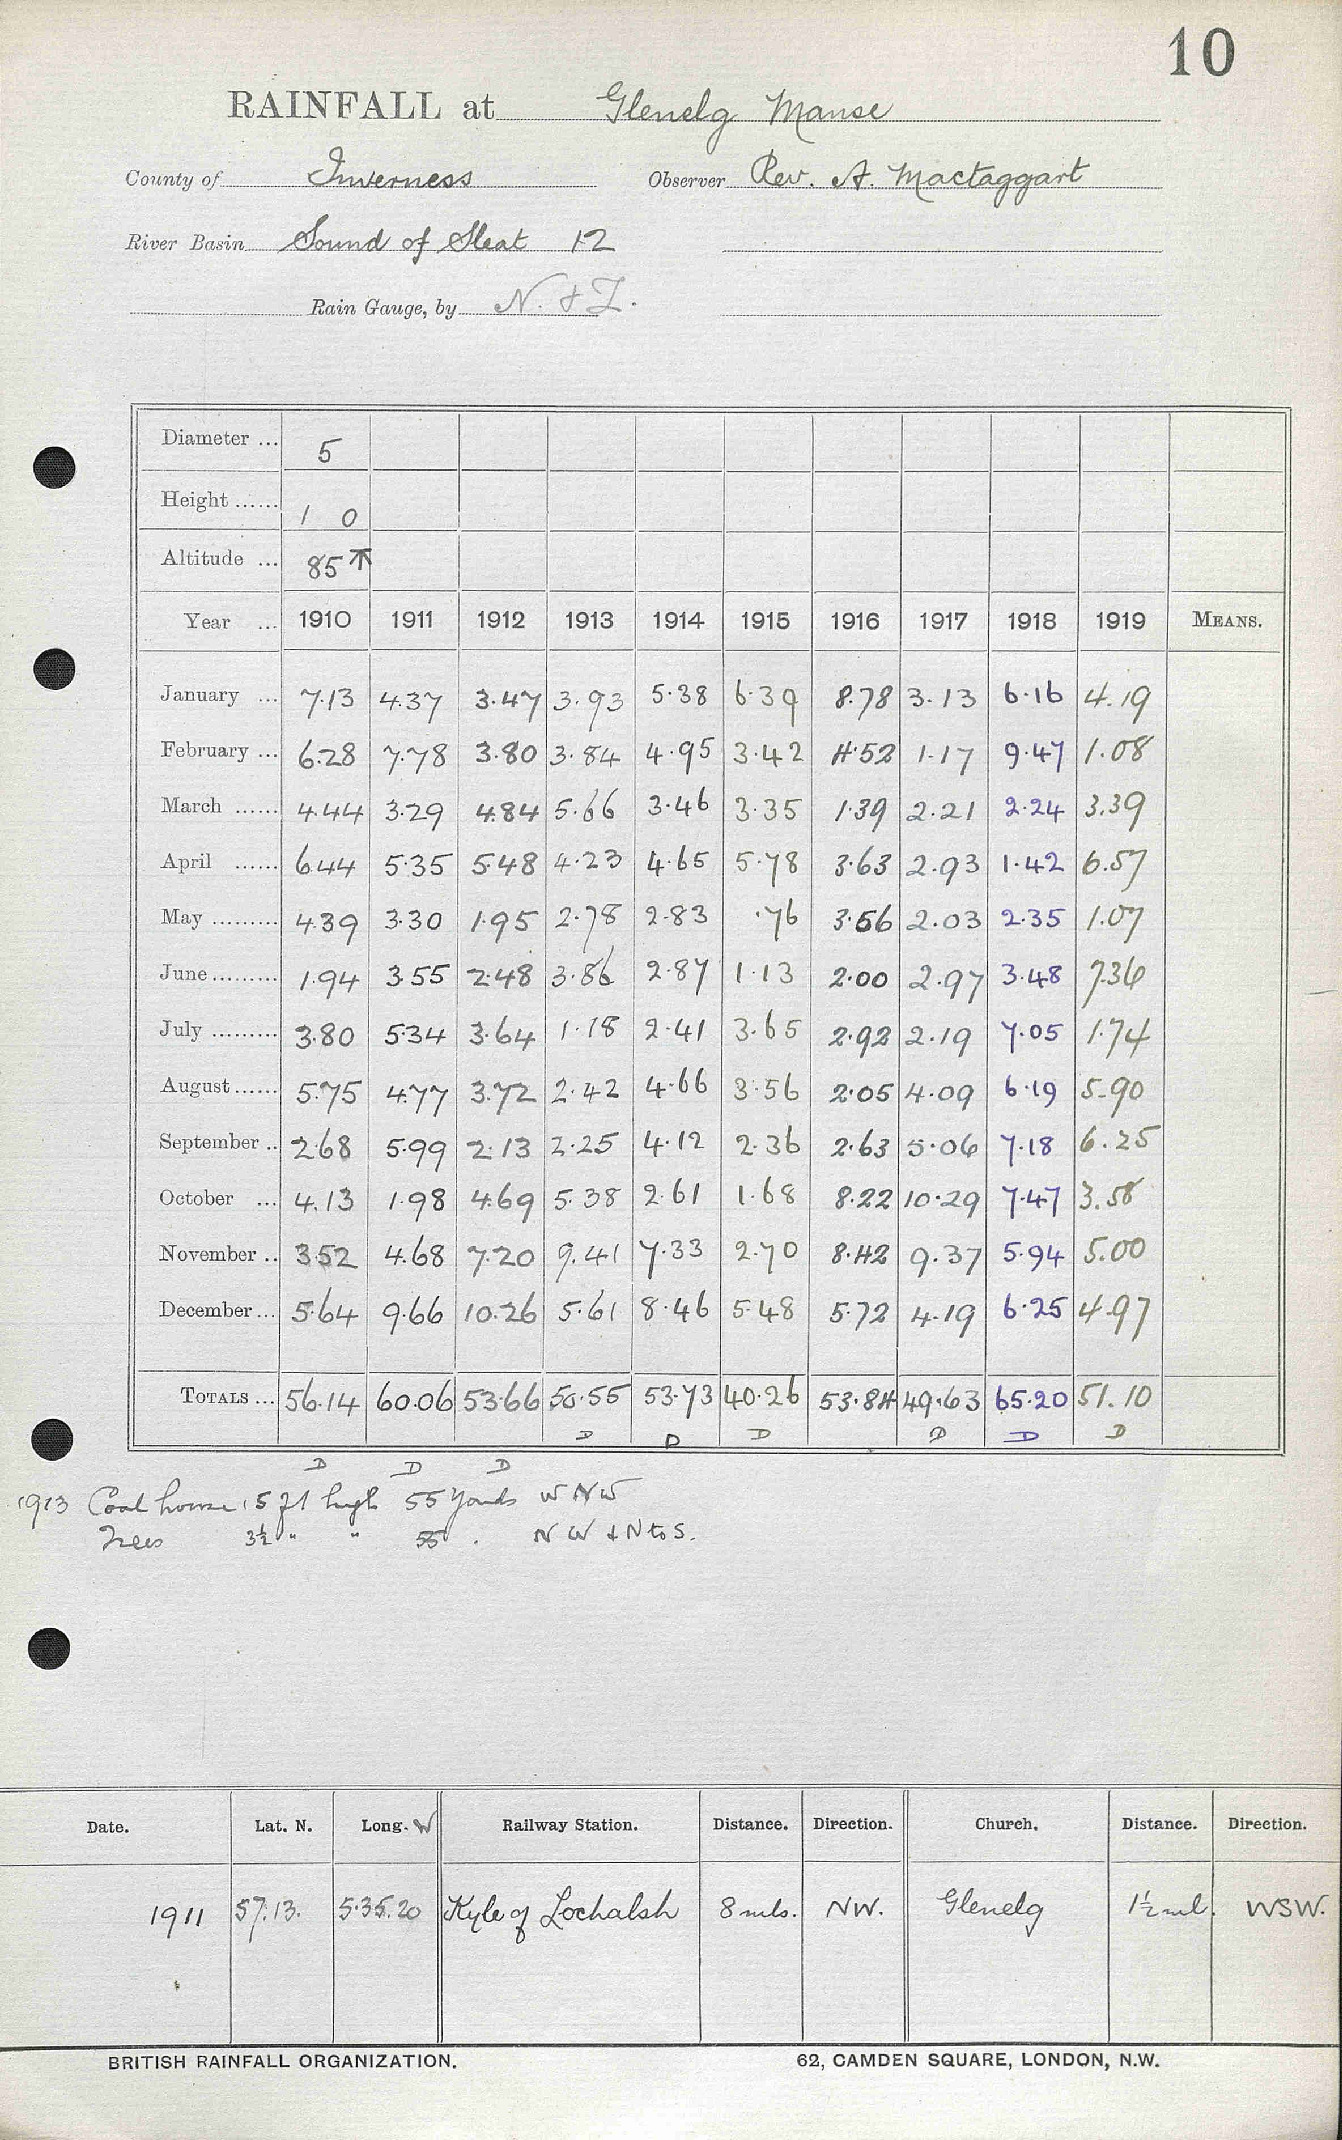 10
RAINFALL at Glenelg Manse
County of Inverness Observer Rev. A. Mactaggart
River Basin Sound of Sleat 12
Rain Gauge, by N. & Z.
Diameter ... 5
Height ...... 1 0
Altitude ... 85
Year ... 1910 1911 1912 1913 1914 1915 1916 1917 1918 1919 MEANS.
January ... 7.13 4.37 3.47 3.93 5.38 6.39 8.78 3.13 6.16 4.19
February ... 6.28 7.78 3.80 3.84 4.95 3.42 4.52 1.17 9.47 1.08
March ...... 4.44 3.29 4.84 5.66 3.46 3.35 1.39 2.21 2.24 3.39
April ...... 6.44 5.35 5.48 4.23 4.65 5.78 3.63 2.93 1.42 6.57
May ......... 4.39 3.30 1.95 2.78 2.83 .76 3.56 2.03 2.35 1.07
June ......... 1.94 3.55 2.48 3.86 2.87 1.13 2.00 2.97 3.48 7.36
July ......... 3.80 5.34 3.64 1.18 2.41 3.65 2.92 2.19 7.05 1.74
August ...... 5.75 4.77 3.72 2.42 4.66 3.56 2.05 4.09 6.19 5.90
September .. 2.68 5.99 2.13 2.25 4.12 2.36 2.63 5.06 7.18 6.25
October ... 4.13 1.98 4.69 5.38 2.61 1.68 8.22 10.29 7.47 3.58
November .. 3.52 4.68 7.20 9.41 7.33 2.70 8.42 9.37 5.94 5.00
December ... 5.64 9.66 10.26 5.61 8.46 5.48 5.72 4.19 6.25 4.97
TOTALS ... 56.14 60.06 53.66 50.55 53.73 40.26 53.84 49.63 65.20 51.10
D D D D D D
D D D
1913 Coal house 15 ft high 55 Yards W N W
Trees 3½ " " 55 . N W & N to S.
Date. Lat. N. Long. W Railway Station. Distance. Direction. Church. Distance. Direction.
1911 57.13. 5.35.20 Kyle of Lochalsh 8 mls. NW. Glenelg 1½ ml. WSW.
BRITISH RAINFALL ORGANIZATION. 62, CAMDEN SQUARE, LONDON, N.W.